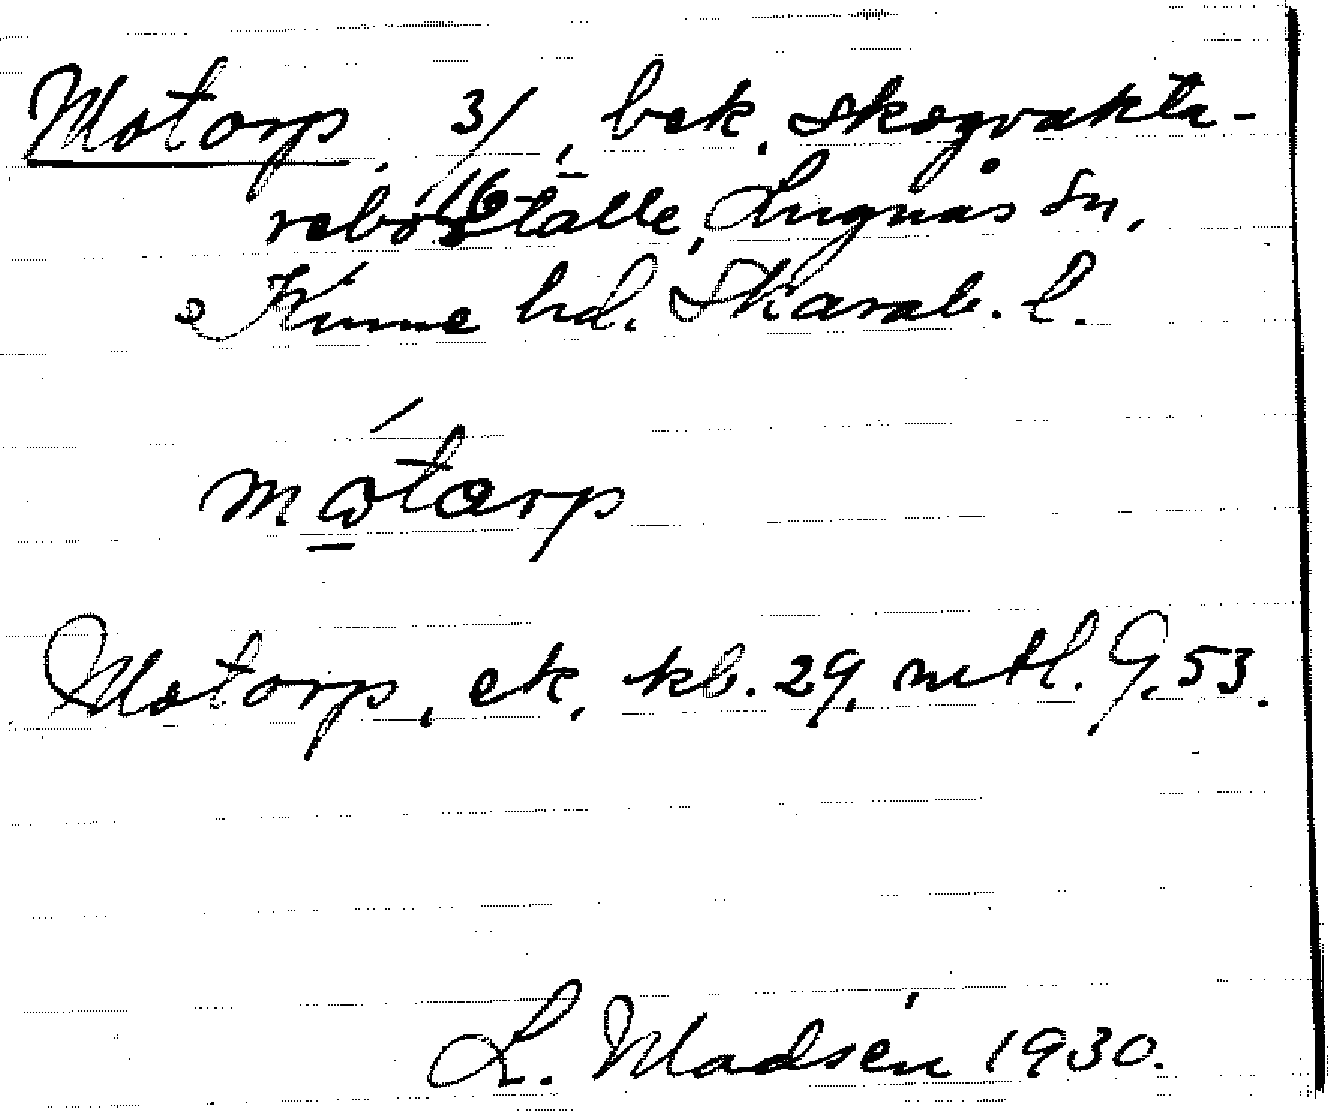 Motorp, 3/16, bek. skogvakta-
reboställe, Lugnås sn,
Kinne hd. Skarab. l.
mɷtɷrp
Motorp, ek. kb. 29, mtl. 9,53.
L. Madsén 1930.